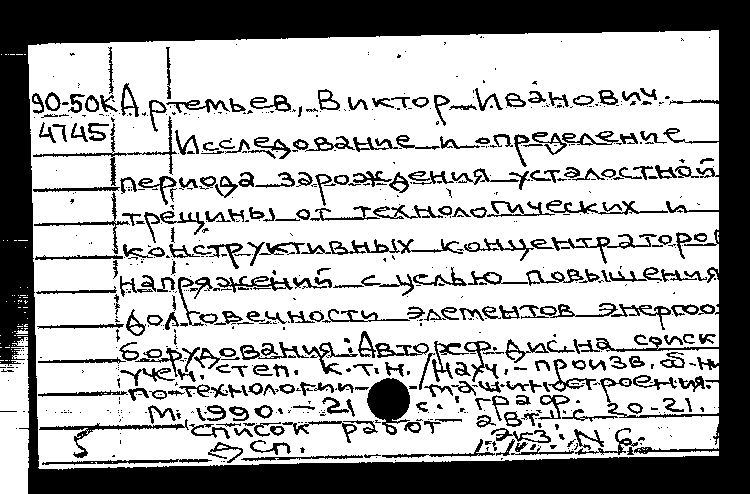 90-50К Артемьев, Виктор Иванович.
4745 Исследование и определение
периода зарождения усталостной
трещины от технологических и
конструктивных концентраторов
напряжений с целью повышения
долговечности элементов энергоо-
борудования: Автореф. дис. на соиск
учен. степ. к.т.н. /Науч.-произв. об-ни
по технологии машиностроения.
М. 1990. - 21 с.: граф.
Список работ авт.: с. 20-21.
5 Сп. N 6.